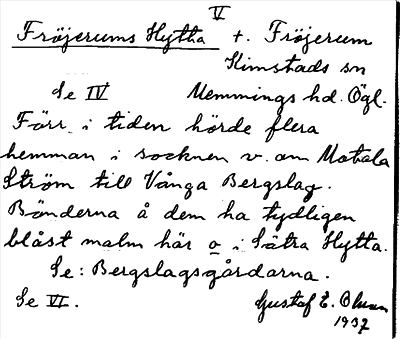 V
Fröjerums Hytta t. Fröjerum
Kimstads sn
Se IV Memmings hd. Ögl.
Förr i tiden hörde flera
hemman i socknen v. om Motala
Ström till Vånga Bergslag.
Bönderna å dem ha tydligen
blåst malm här o i Sätra Hytta.
Se: Bergslagsgårdarna.
Se VI. Gustaf E. Olsson
1937